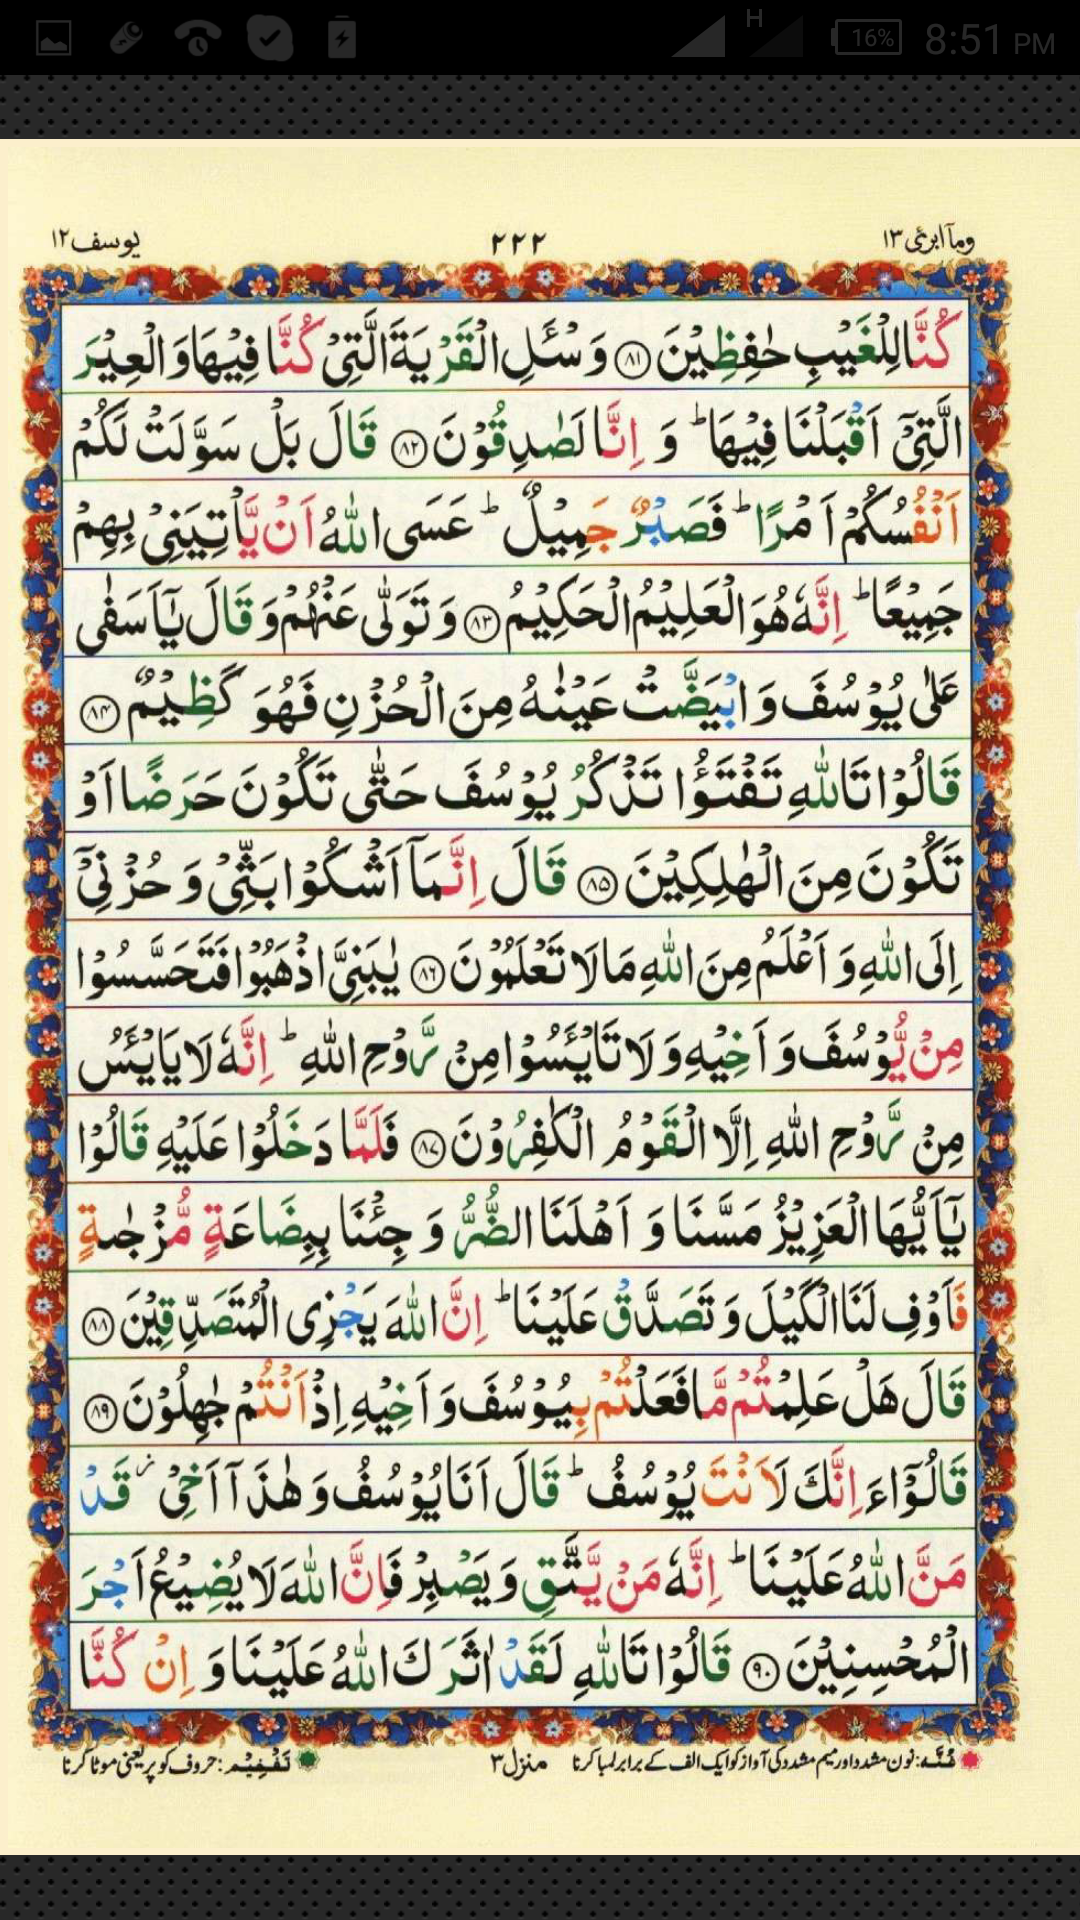 H 16% 8:51 PM
ومآ ابرئ ١٣ ٢٢٢ يوسف ١٢
كُنَّا لِلْغَيْبِ حٰفِظِيْنَ ﴿٨١﴾ وَ سْـَٔلِ الْقَرْيَةَ الَّتِيْ كُنَّا فِيْهَا وَ الْعِيْرَ
الَّتِيْۤ اَقْبَلْنَا فِيْهَا ؕ وَ اِنَّا لَصٰدِقُوْنَ ﴿٨٢﴾ قَالَ بَلْ سَوَّلَتْ لَكُمْ
اَنْفُسُكُمْ اَمْرًا ؕ فَصَبْرٌ جَمِيْلٌ ؕ عَسَى اللّٰهُ اَنْ يَّاْتِيَنِيْ بِهِمْ
جَمِيْعًا ؕ اِنَّهٗ هُوَ الْعَلِيْمُ الْحَكِيْمُ ﴿٨٣﴾ وَ تَوَلّٰى عَنْهُمْ وَ قَالَ يٰۤاَسَفٰى
عَلٰى يُوْسُفَ وَ ابْيَضَّتْ عَيْنٰهُ مِنَ الْحُزْنِ فَهُوَ كَظِيْمٌ ﴿٨٤﴾
قَالُوْا تَاللّٰهِ تَفْتَؤُا تَذْكُرُ يُوْسُفَ حَتّٰى تَكُوْنَ حَرَضًا اَوْ
تَكُوْنَ مِنَ الْهٰلِكِيْنَ ﴿٨٥﴾ قَالَ اِنَّمَاۤ اَشْكُوْا بَثِّيْ وَ حُزْنِيْۤ
اِلَى اللّٰهِ وَ اَعْلَمُ مِنَ اللّٰهِ مَا لَا تَعْلَمُوْنَ ﴿٨٦﴾ يٰبَنِيَّ اذْهَبُوْا فَتَحَسَّسُوْا
مِنْ يُّوْسُفَ وَ اَخِيْهِ وَ لَا تَايْـَٔسُوْا مِنْ رَّوْحِ اللّٰهِ ؕ اِنَّهٗ لَا يَايْـَٔسُ
مِنْ رَّوْحِ اللّٰهِ اِلَّا الْقَوْمُ الْكٰفِرُوْنَ ﴿٨٧﴾ فَلَمَّا دَخَلُوْا عَلَيْهِ قَالُوْا
يٰۤاَيُّهَا الْعَزِيْزُ مَسَّنَا وَ اَهْلَنَا الضُّرُّ وَ جِئْنَا بِبِضَاعَةٍ مُّزْجٰىةٍ
فَاَوْفِ لَنَا الْكَيْلَ وَ تَصَدَّقْ عَلَيْنَا ؕ اِنَّ اللّٰهَ يَجْزِى الْمُتَصَدِّقِيْنَ ﴿٨٨﴾
قَالَ هَلْ عَلِمْتُمْ مَّا فَعَلْتُمْ بِيُوْسُفَ وَ اَخِيْهِ اِذْ اَنْتُمْ جٰهِلُوْنَ ﴿٨٩﴾
قَالُوْۤا ءَاِنَّكَ لَاَنْتَ يُوْسُفُ ؕ قَالَ اَنَا يُوْسُفُ وَ هٰذَاۤ اَخِيْ ؗ قَدْ
مَنَّ اللّٰهُ عَلَيْنَا ؕ اِنَّهٗ مَنْ يَّتَّقِ وَ يَصْبِرْ فَاِنَّ اللّٰهَ لَا يُضِيْعُ اَجْرَ
الْمُحْسِنِيْنَ ﴿٩٠﴾ قَالُوْا تَاللّٰهِ لَقَدْ اٰثَرَكَ اللّٰهُ عَلَيْنَا وَ اِنْ كُنَّا
غُنّه: نون مشدد اور میم مشدد کی آواز کو ایک الف کے برابر لمبا کرنا منزل ٣ تَفْخِيْم: حروف کو پُر یعنی موٹا کرنا